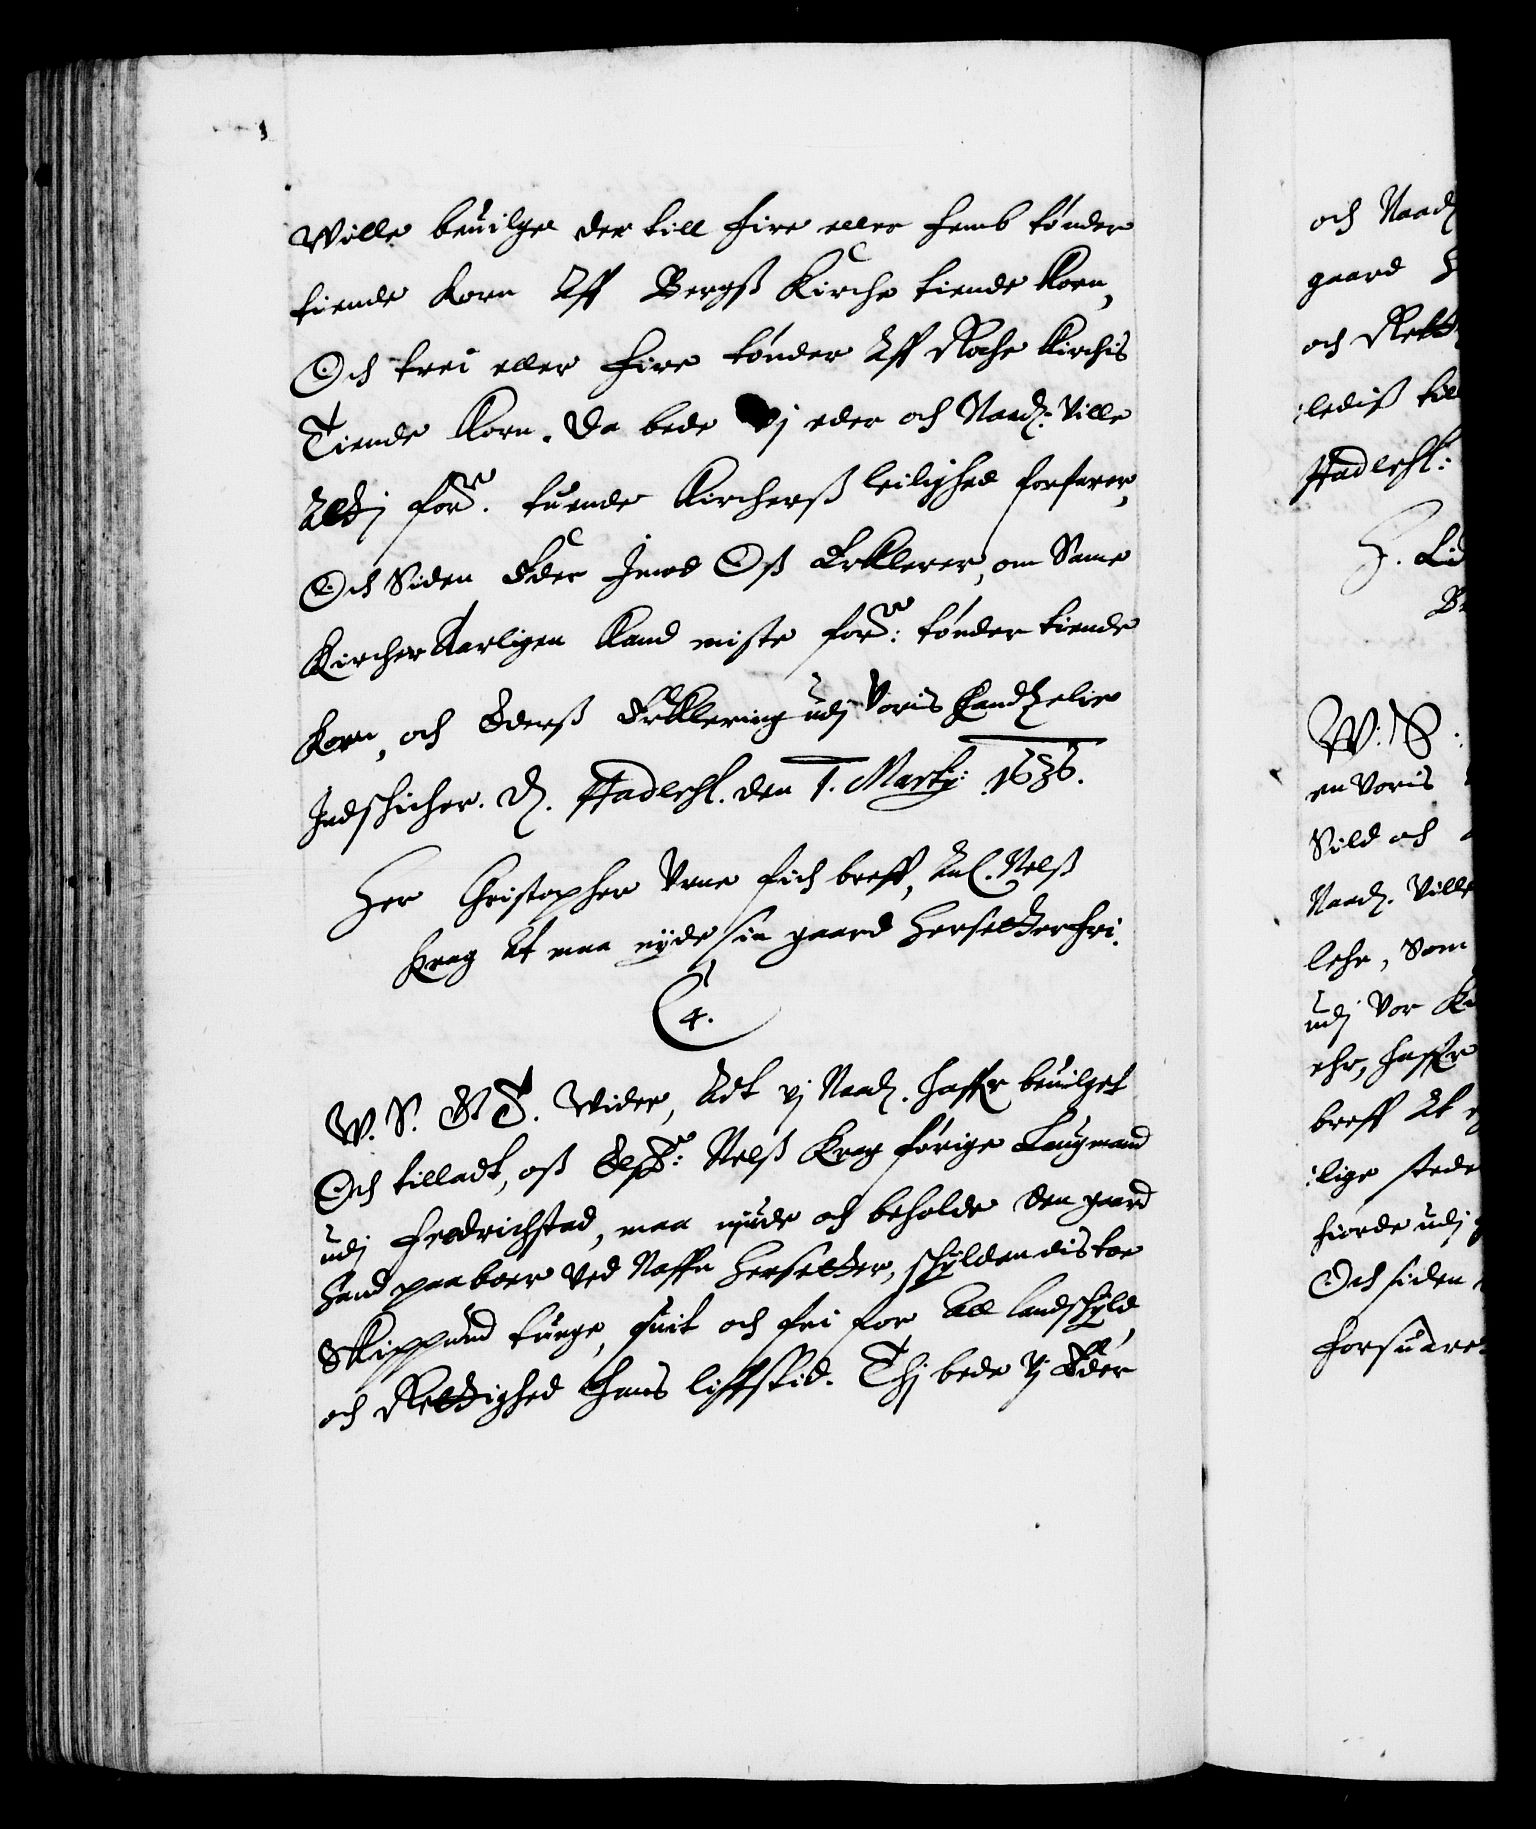 Wille beuilge der till fire eller femb tønder
tiende Korn Aff Bergß Kirche tiende Korn,
Och trei eller fire tønder Aff Rache Kirchis
Tiende Korn. Da bede vj eder och Naadz. ville
Attj forne. tuende Kircherß leilighed forfarer,
Och Siden Eder Imod Oß Erklerer, om Same
Kircher Aarligen Kand miste forne: tønder tiende
Korn, och Ederß Erklering udj Voris Candzelie
Indschicher. D. Hadersl. den 1. Martij: 1636.
Her Christopher Vrne fich breff, Anl. Nelß
Krag At maa nyde sin gaard Hersetter fri.
C 4.
W. S. G T. Wider, Adt vj Naadz. haffr beuilget
Och tilladt, oß Elsche: Nelß Krag forige Laugmand
udj Fredrichstad, maa niude och beholde den gaard
hand paaboer ved Naffn Hersetter, schyldendis toe
Skippund tunge, quit och fri for All landschyld
och Rettighed Hans liffstid. Thj bede Vj Eder
och Naadz
gaard
och Rett
ledis till
Hadersl:
H.
W. S.
en Voris
Sild och
Naadz. Ville
lehn, Som
udj Vor
ehr, haffr
breff At
lige stede
fiorde udj
Och siden
forsuare